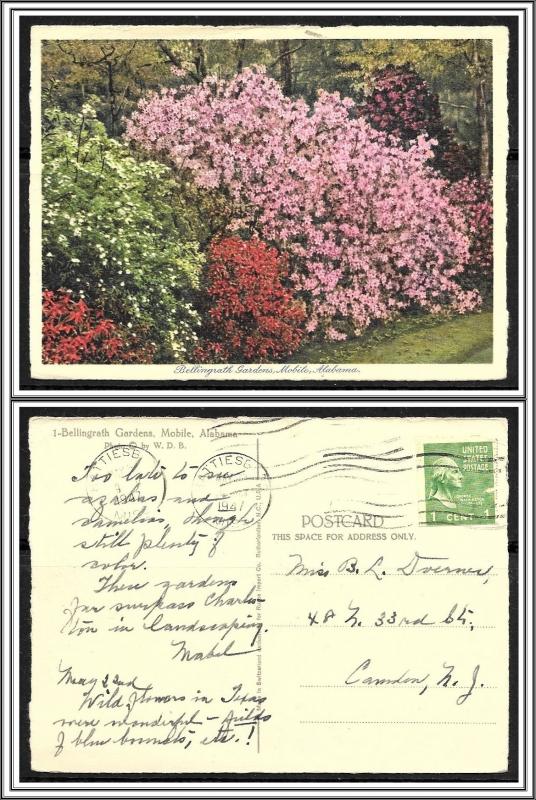 Bellingrath Gardens, Mobile, Alabama.
1-Bellingrath Gardens, Mobile, Alabama
Photo © by W. D. B.
TTIESB
TTIESB
1947
UNITED
STATES
POSTAGE
1 CENT 1
POSTCARD
THIS SPACE FOR ADDRESS ONLY.
Too late to see
azaleas and
camelias, though
still plenty of
color.
These gardens
far surpass Charles-
ton in landscaping.
Mabel
May 22nd
Wild flowers in Texas
were wonderful - fields
of blue bonnets, etc.!
Miss B. L.
48 N. 33rd St,
Camden, N. J.
in Switzerland
for Rhom Import Co. Rutherford N.J., U.S.A.